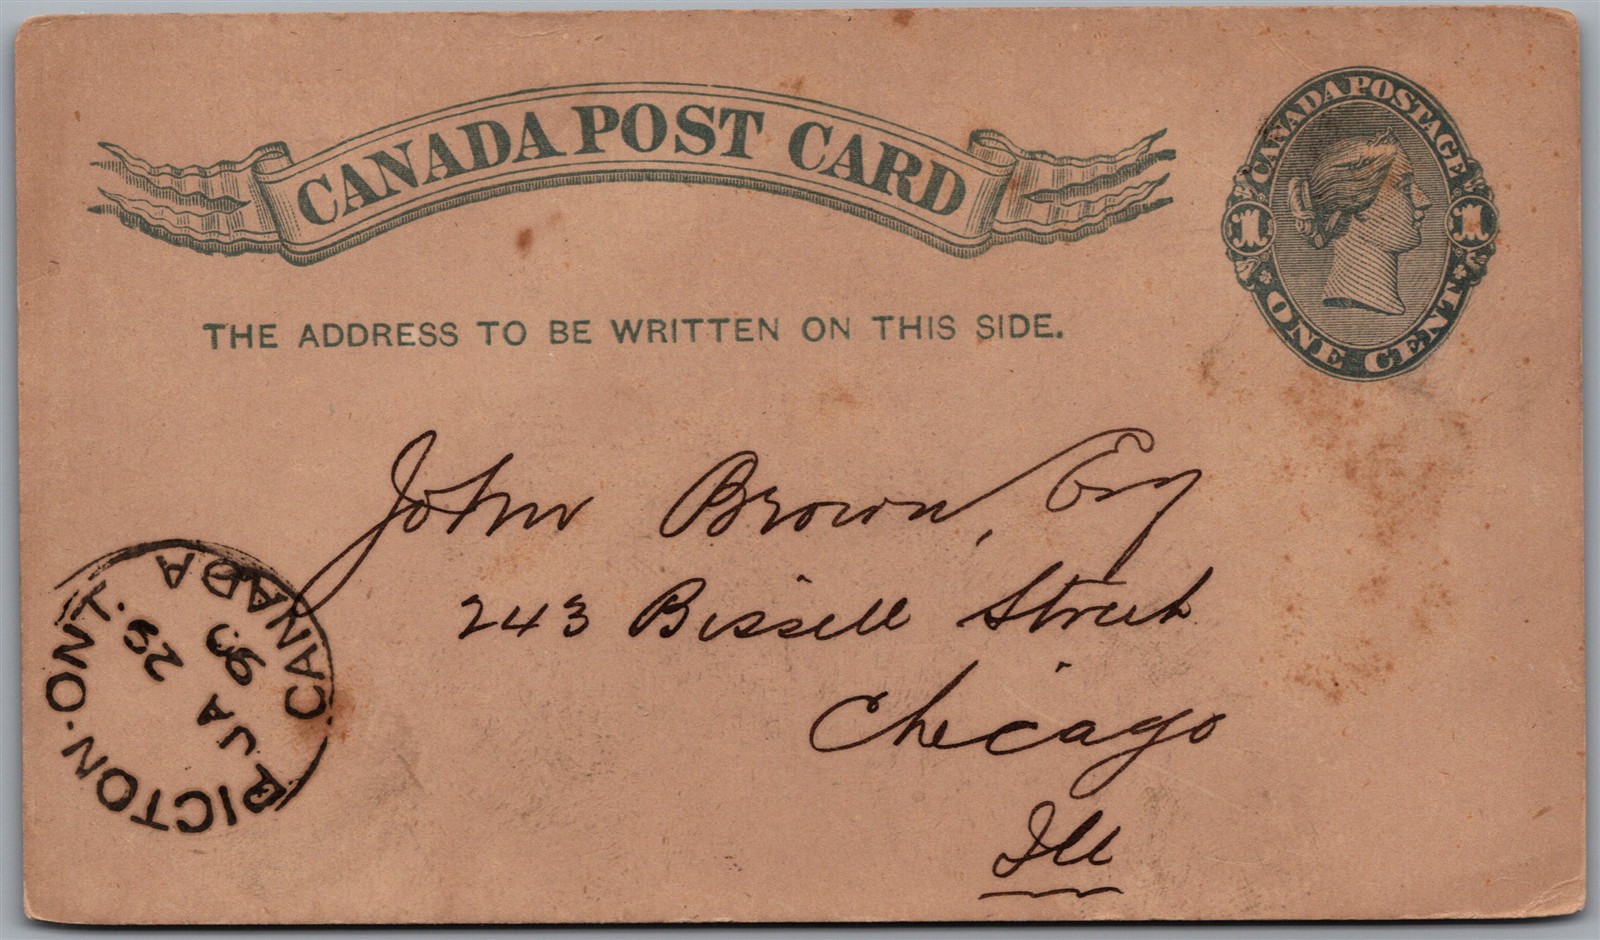 CANADA POST CARD
CANADA POSTAGE
1 1
ONE CENT
THE ADDRESS TO BE WRITTEN ON THIS SIDE.
John Brown, Esq
243 Bissell Street
Chicago
Ill
PICTON·ONT.
CANADA
JA
93